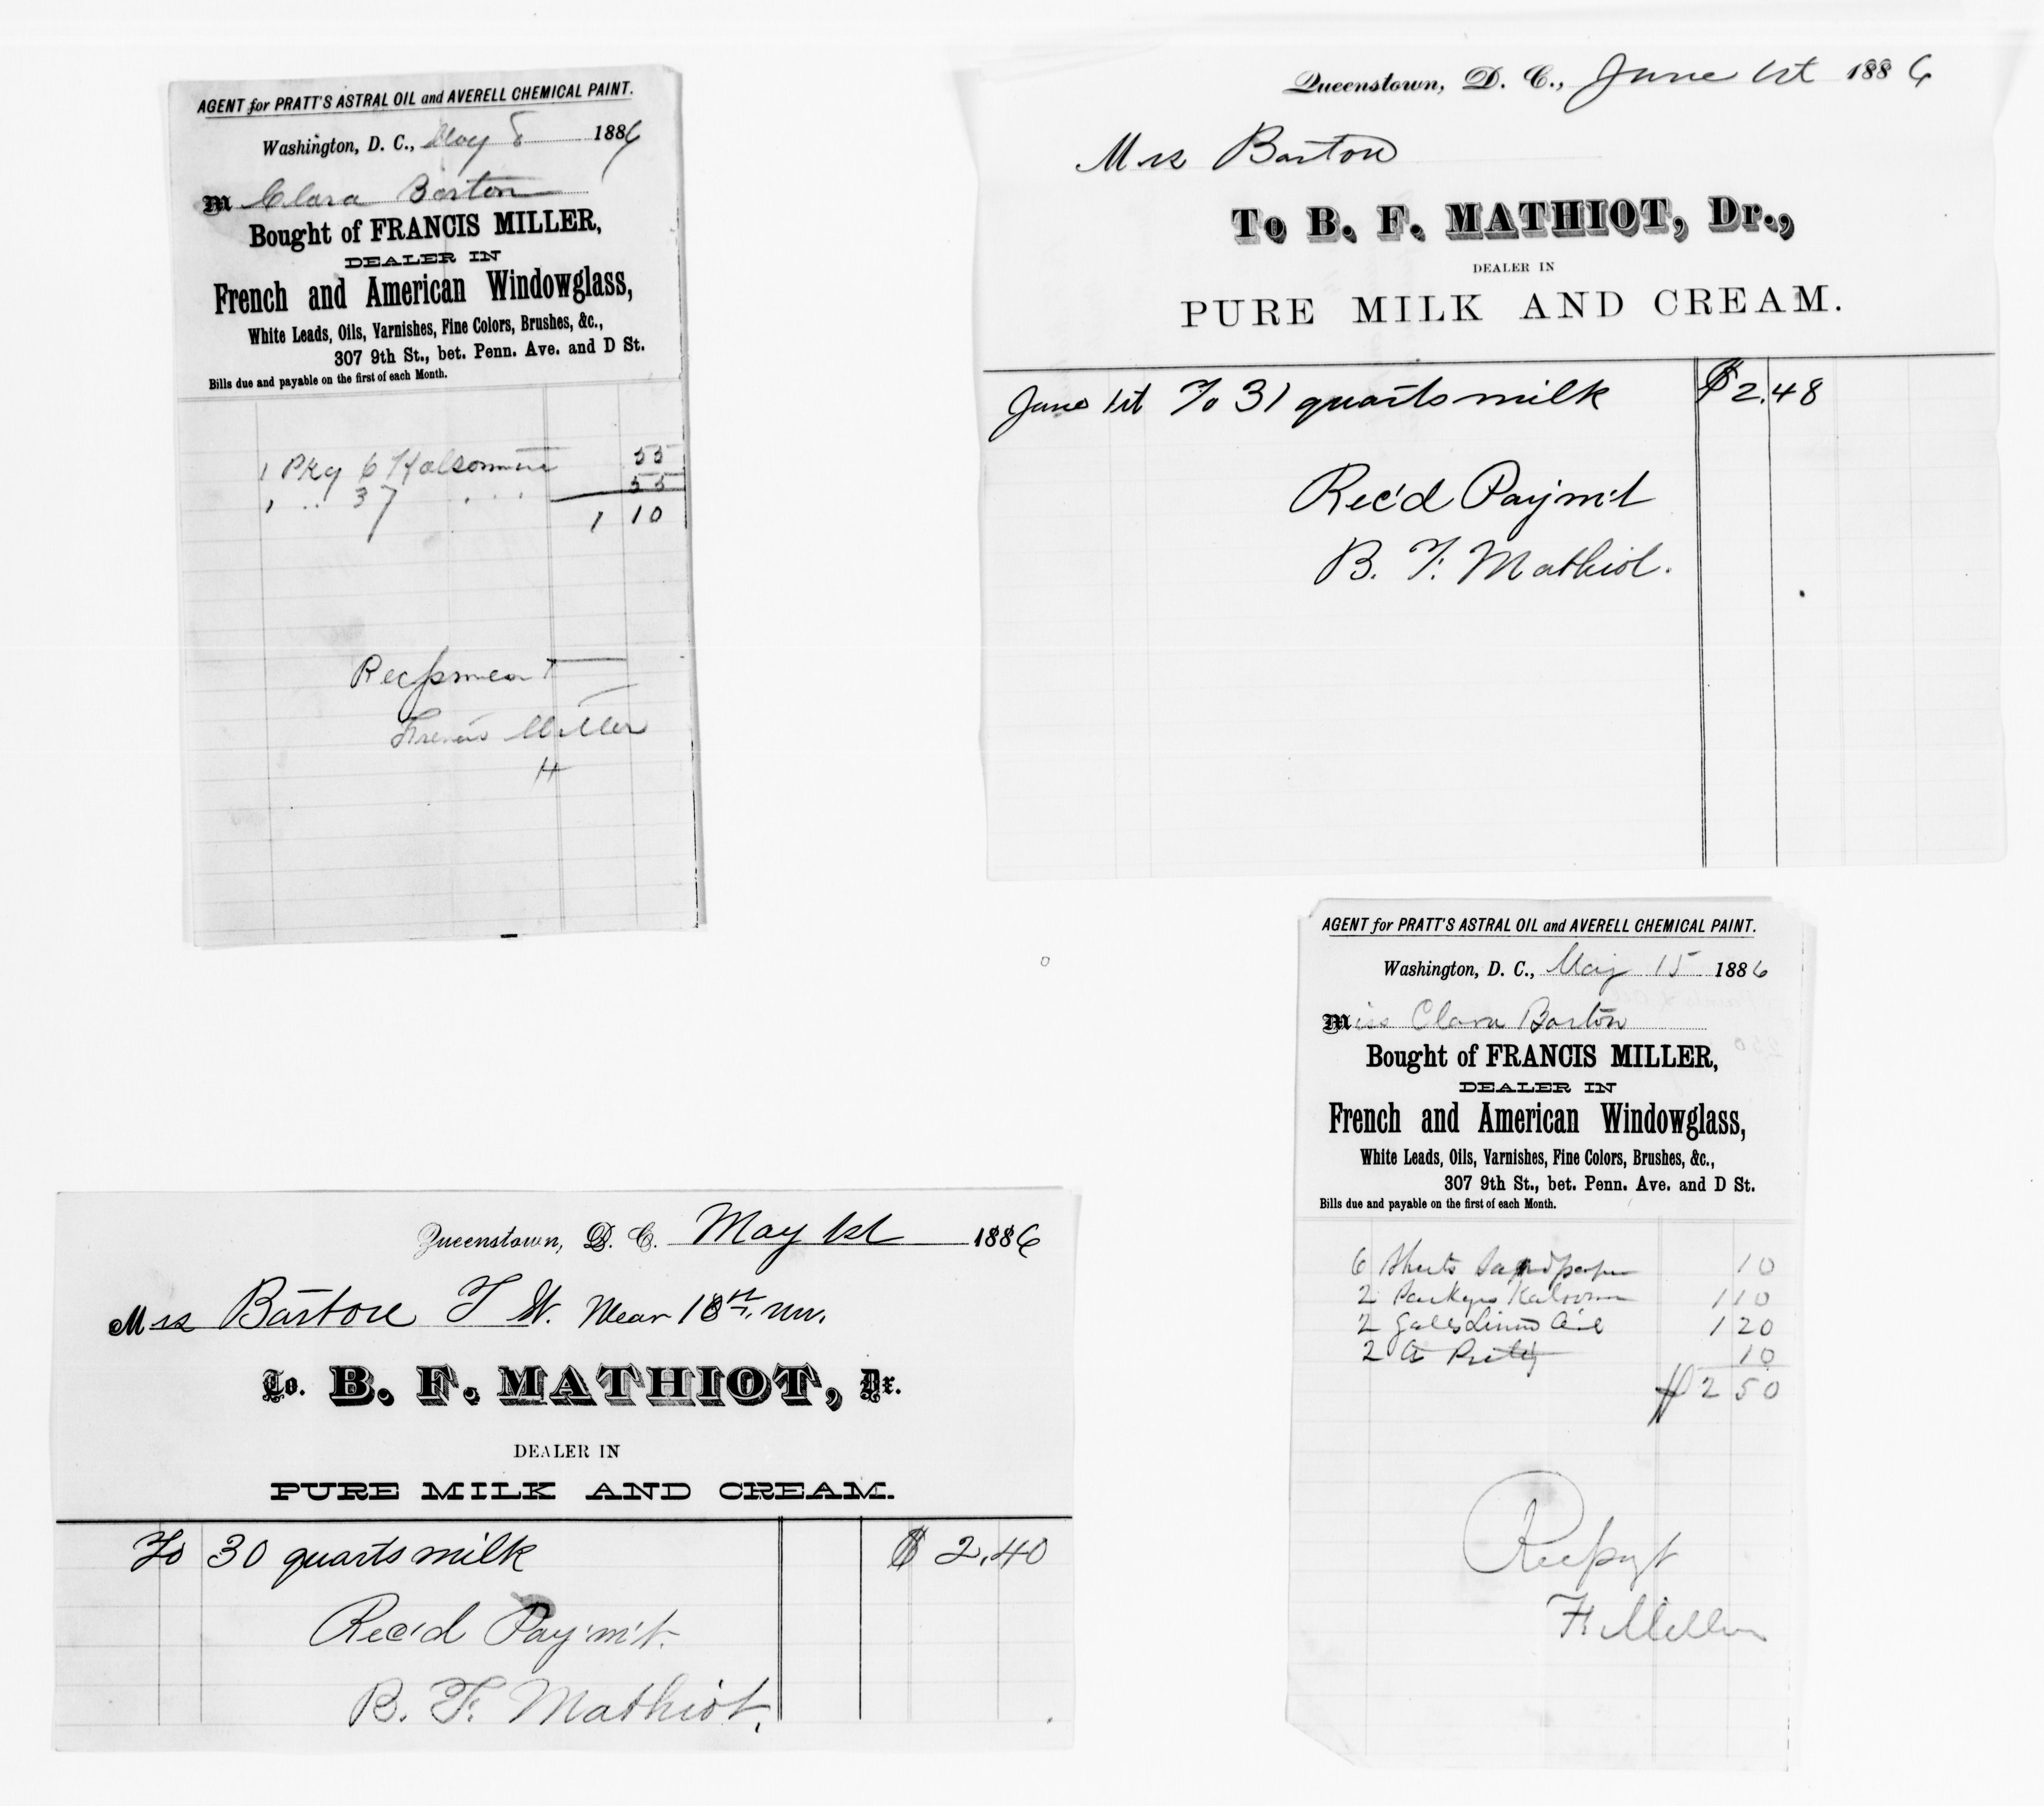 AGENT for PRATT'S ASTRAL OIL and AVERELL CHEMICAL PAINT.
Washington, D. C., May 8 1886
M Clara Barton
Bought of FRANCIS MILLER,
DEALER IN
French and American Windowglass,
White Leads, Oils, Varnishes, Fine Colors, Brushes, &c.,
307 9th St., bet. Penn. Ave. and D St.
Bills due and payable on the first of each Month.
1 Pkg 6 Kalsomine 55
1 " 37 " " " 55
1 10
Recpment
Francis Miller
H
Queenstown, D. C., June 1st 1886
Mrs Barton
To B. F. MATHIOT, Dr.,
DEALER IN
PURE MILK AND CREAM.
June 1st To 31 quarts milk $2.48
Rec'd Paym't
B. F. Mathiot.
Queenstown, D. C. May 1st 1886
Mrs Barton T St. Near 18th, NW.
To. B. F. MATHIOT, Dr.
DEALER IN
PURE MILK AND CREAM.
To 30 quarts milk $2.40
Rec'd Pay'm't.
B. F. Mathiot.
AGENT for PRATT'S ASTRAL OIL and AVERELL CHEMICAL PAINT.
Washington, D. C., May 15 1886
Miss Clara Barton
Bought of FRANCIS MILLER,
DEALER IN
French and American Windowglass,
White Leads, Oils, Varnishes, Fine Colors, Brushes, &c.,
307 9th St., bet. Penn. Ave. and D St.
Bills due and payable on the first of each Month.
6 Sheets Sandpaper 10
2 1 10
2 Galls Oil 1 20
2 Putty 10
2 50
Recpayt
F Miller